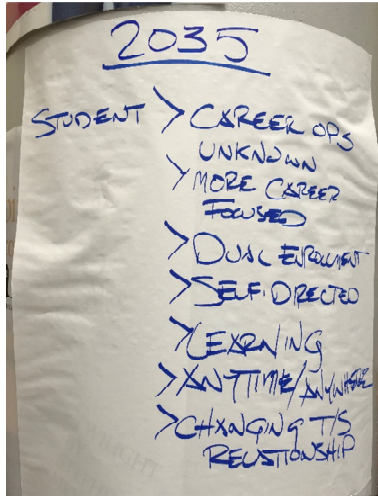 2035
STUDENT > CAREER OPS
UNKNOWN
> MORE CAREER
FOCUSED
> DUAL ENROLLMENT
> SELF-DIRECTED
> LEARNING
> ANYTIME/ANYWHERE
> CHANGING T/S
RELATIONSHIP